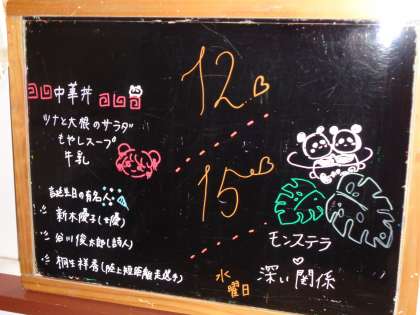 中華丼
ツナと大根のサラダ
もやしスープ
牛乳
誕生日の有名人
新木優子(女優)
谷川俊太郎(詩人)
桐生祥秀(陸上短距離走選手)
12
15
水
曜日
モンステラ
深い関係